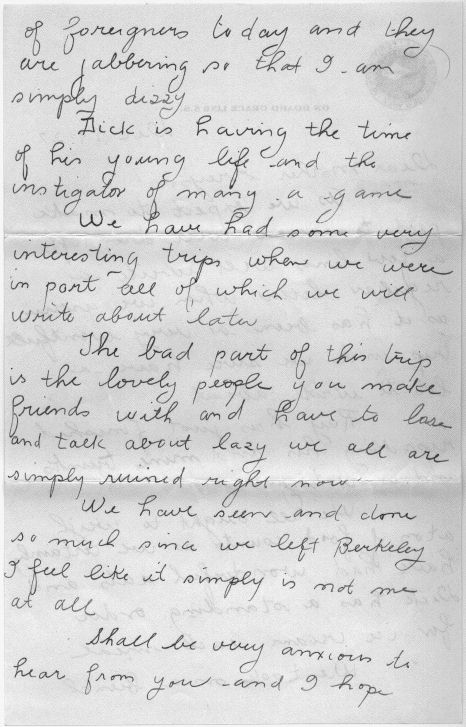 of foreigners today and they
are jabbering so that I am
simply dizzy
Dick is having the time
of his young life and the
instigator of many a game
We have had some very
interesting trips when we were
in port - all of which we will
write about later
The bad part of this trip
is the lovely people you make
friends with and have to lose
and talk about lazy we all are
simply ruined right now
We have seen and done
so much since we left Berkeley
I feel like it simply is not me
at all
Shall be very anxious to
hear from you and I hope